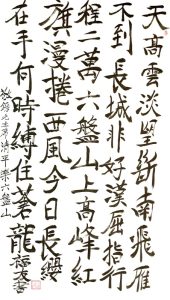 天高雲淡望斷南飛雁
不到長城非好漢屈指行
程二萬六盤山上高峰紅
旗漫捲西風今日長纓
在手何時縛住蒼龍
敬錄毛主席清平樂六盤山